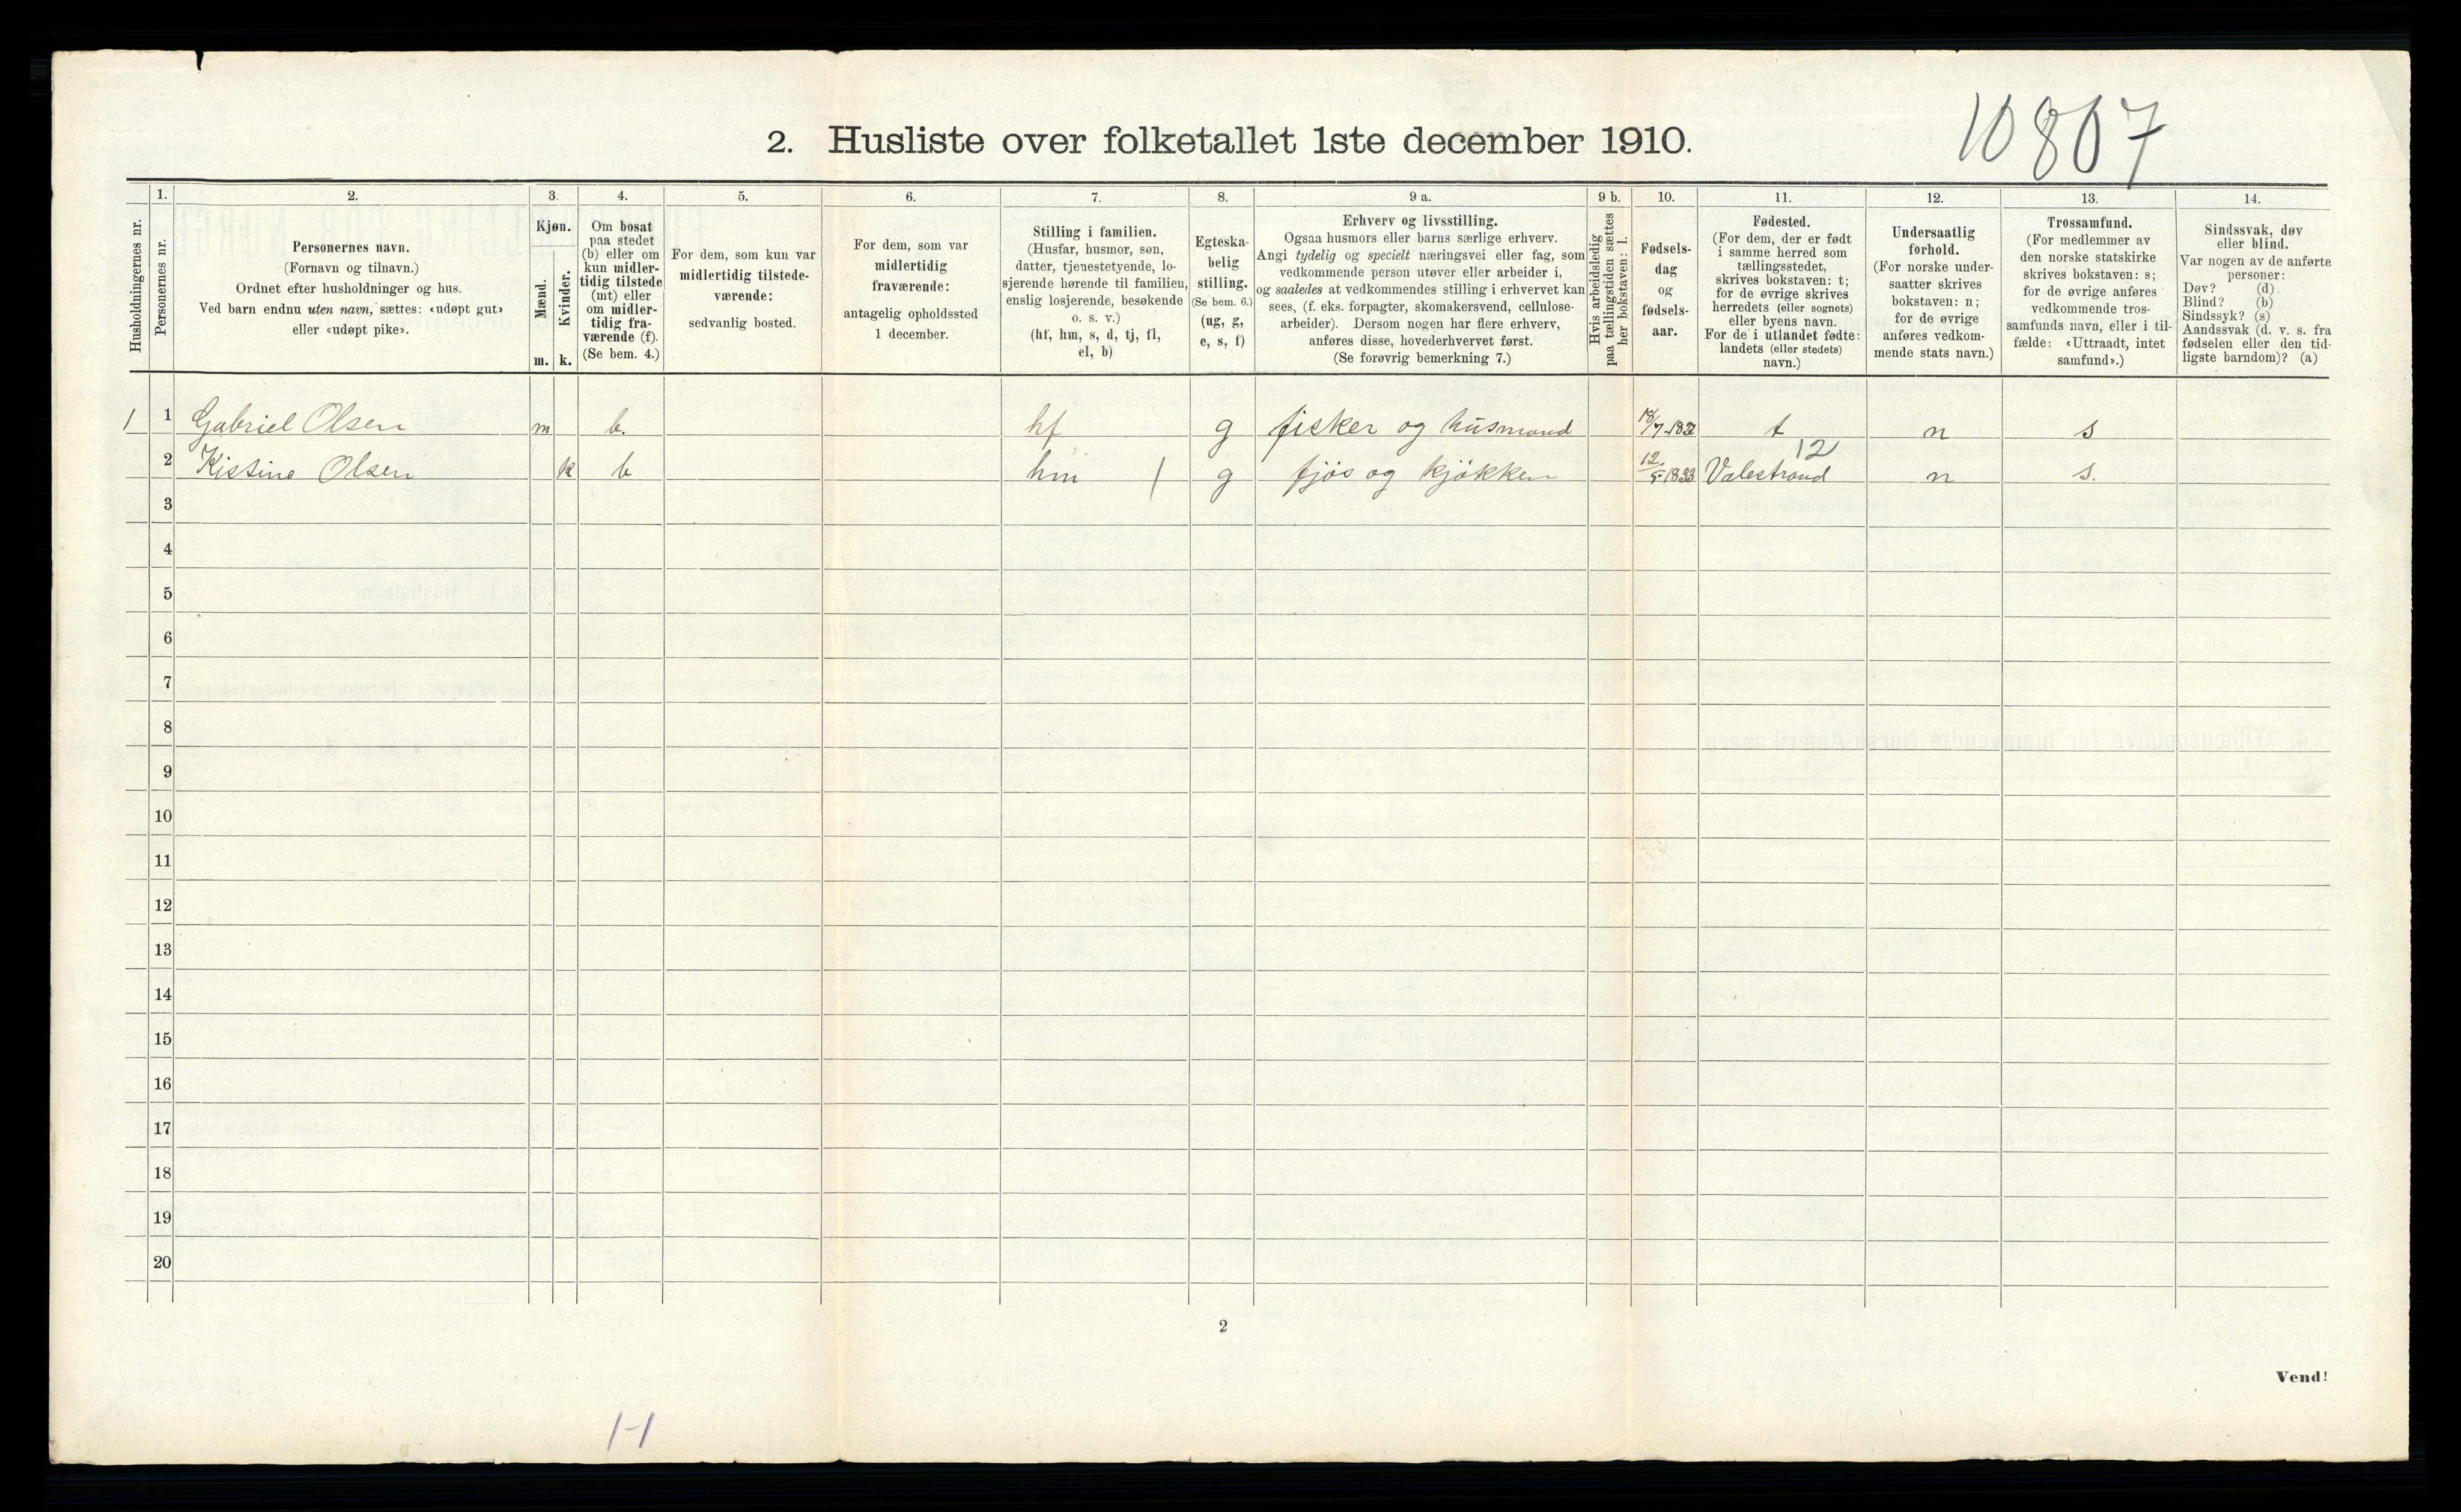 10807
2. Husliste over folketallet 1ste december 1910.
Husholdningernes nr.
1.
Personernes nr.
2.
Personernes navn.
(Fornavn og tilnavn.)
Ordnet efter husholdninger og hus.
Ved barn endnu uten navn, sættes: «udøpt gut»
eller «udøpt pike».
3.
Kjøn.
Mænd.
m.
Kvinder.
k.
4.
Om bosat
paa stedet
(b) eller om
kun midler-
tidig tilstede
(mt) eller
om midler-
tidig fra-
værende (f).
(Se bem. 4.)
5.
For dem, som kun var
midlertidig tilstede-
værende:
sedvanlig bosted.
6.
For dem, som var
midlertidig
fraværende:
antagelig opholdssted
1 december.
7.
Stilling i familien.
(Husfar, husmor, søn,
datter, tjenestetyende, lo-
sjerende hørende til familien,
enslig losjerende, besøkende
o. s. v.)
(hf, hm, s, d, tj, fl,
el, b)
8.
Egteska-
belig
stilling.
(Se bem. 6.)
(ug, g,
e, s, f)
9 a.
Erhverv og livsstilling.
Ogsaa husmors eller barns særlige erhverv.
Angi tydelig og specielt næringsvei eller fag, som
vedkommende person utøver eller arbeider i,
og saaledes at vedkommendes stilling i erhvervet kan
sees, (f. eks. forpagter, skomakersvend, cellulose-
arbeider). Dersom nogen har flere erhverv,
anføres disse, hovederhvervet først.
(Se forøvrig bemerkning 7.)
9 b.
Hvis arbeidsledig
paa tællingstiden sættes
her bokstaven: l.
10.
Fødsels-
dag
og
fødsels-
aar.
11.
Fødested.
(For dem, der er født
i samme herred som
tællingsstedet,
skrives bokstaven: t;
for de øvrige skrives
herredets (eller sognets)
eller byens navn.
For de i utlandet fødte:
landets (eller stedets)
navn.)
12.
Undersaatlig
forhold.
(For norske under-
saatter skrives
bokstaven: n;
for de øvrige
anføres vedkom-
mende stats navn.)
13.
Trossamfund.
(For medlemmer av
den norske statskirke
skrives bokstaven: s;
for de øvrige anføres
vedkommende tros-
samfunds navn, eller i til-
fælde: «Uttraadt, intet
samfund».)
14.
Sindssvak, døv
eller blind.
Var nogen av de anførte
personer:
Døv? (d).
Blind? (b)
Sindssyk? (s)
Aandssvak (d. v. s. fra
fødselen eller den tid-
ligste barndom)? (a)
1 1 Gabriel Olsen m b. hf g fisker og husmand t n s
12
2 Kistine Olsen k b hm / g fjøs og kjøkken 12/5-1833 Valestrand n s.
3
4
5
6
7
8
9
10
11
12
13
14
15
16
17
18
19
20
2
Vend!
1-1